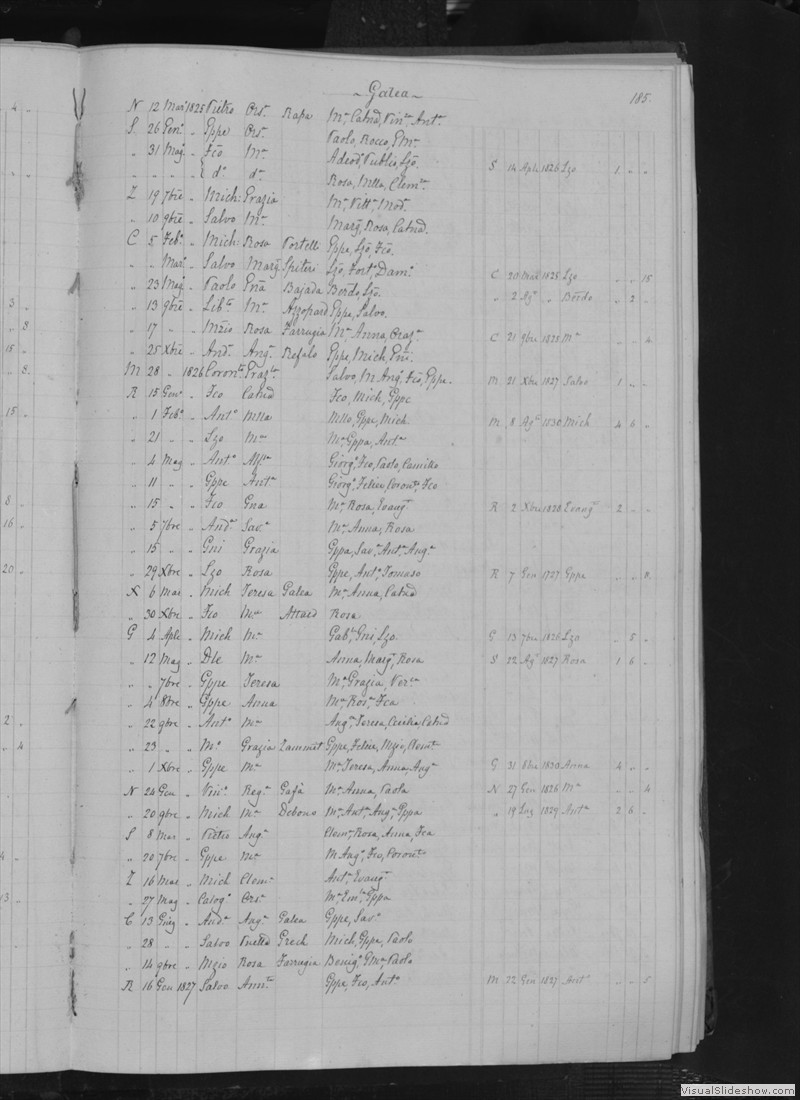 Galea
185.
N 12 Mar 1825 Pietro Ors.a Rapa M.a Catnd, Vin.a Ant.a
S 26 Gen.o " Gppe Ors.a Paolo, Rocco, Em.
" 31 Mag. " Fco M.a Adeod. Publio, Lzo. S 14 Aple 1826 Lzo 1 " "
" " " " E d.o d.a Rosa, Mlla, Clem.
Z 19 7bre " Mich: Grazia M.a Vitt.
" 10 9bre " Salvo M.a Marg. Rosa, Catnd.
C 5 Feb.o " Mich: Rosa Portelli Gppe, Lzo, Fco.
" " Mar. " Salvo Marg. Spiteri Lzo, Fort. Dam. C 20 Mar 1825 Lzo " " 15
" 23 Mag. " Paolo Bajada Berdo, Lzo. " 2 Ag.o " Berdo " 2 "
" 13 9bre " Lib. M.a Azzopard Gppe, Salvo.
" 17 " " Mzio Rosa Farrugia M.a Anna, Graz.a C 21 9bre 1828 M.a " " 4
" 25 Xbre " And. Ang.a Refalo Gppe, Mich,
M 28 " 1826 Coron. Salvo, M. Ang. Fco, Gppe. M 21 Xbre 1827 Salvo 1 " "
R 15 Gen.o " Fco Catnd Fco, Mich, Gppe
" 1 Feb.o " Ant.o Mlla Mllo, Gppe, Mich. M 8 Ag.o 1830 Mich 4 6 "
" 21 " " Lzo M.a M.a Gppa, Ant.a
" 4 Mag " Ant.o Giorg.o Fco, Paolo, Camillo
" 11 " " Gppe Ant.a Giorg.o Felice, Coron.to Fco
" 15 " " Fco Gna M.a Rosa, Evang. R 2 Xbre 1828 Evang. 2 " "
" 5 7bre " And. Sav.a M.a Anna, Rosa
" 15 " " Gni Grazia Gppa, Sav. Ant. Ang.
" 29 Xbre " Lzo Rosa Gppe, Ant.o Tomaso R 7 Gen 1727 Gppa " " 8
X 6 Mar " Mich Teresa Galea M.a Anna, Catnd
" 30 Xbre " Fco M.a Attard Rosa
G 4 Aple " Mich M.a Gab. Gni, Lzo. G 13 7bre 1826 Lzo " 5 "
" 12 Mag " Dle M.a Anna, Marg. Rosa S 22 Ag.o 1827 Rosa 1 6 "
" " 7bre " Gppe Teresa M.a Grazia, Ver.
" 4 8bre " Gppe Anna M.a Ros. Fca
" 22 9bre " Ant.o M.a Ang. Teresa, Cecilia, Catnd
" 23 " " M.o Grazia Zammit Gppe, Felice, Mzio, Clem.
" 1 Xbre " Gppe M.a M.a Teresa, Anna, Ang.a G 31 8bre 1830 Anna 4 " "
N 24 Gen " Vin. Reg.a Gafà M.a Anna, Paola N 27 Gen 1826 M.a " " 4
" 20 9bre " Mich M.a Debono M.a Ant. Ang. Gppa " 19 Lug 1829 Ant.a 2 6 "
S 8 Mar " Pietro Ang.a Clem. Rosa, Anna, Fca
" 20 7bre " Gppe M.a M. Ang. Fco, Coron.to
Z 16 Mar " Mich Clem.a Ant. Evang.
" 27 Mag " Calog.o Ors.a M.a Em. Gppa
C 13 Giug " And. Ang.a Galea Gppe, Sav.
" 28 " " Salvo Grech Mich, Gppe, Paolo
" 14 9bre " Mzio Rosa Farrugia Benig. Paolo
R 16 Gen 1827 Salvo Ann. Gppe, Fco, Ant.o M 22 Gen 1827 Ant.o " " 5
VisualSlideshow.com